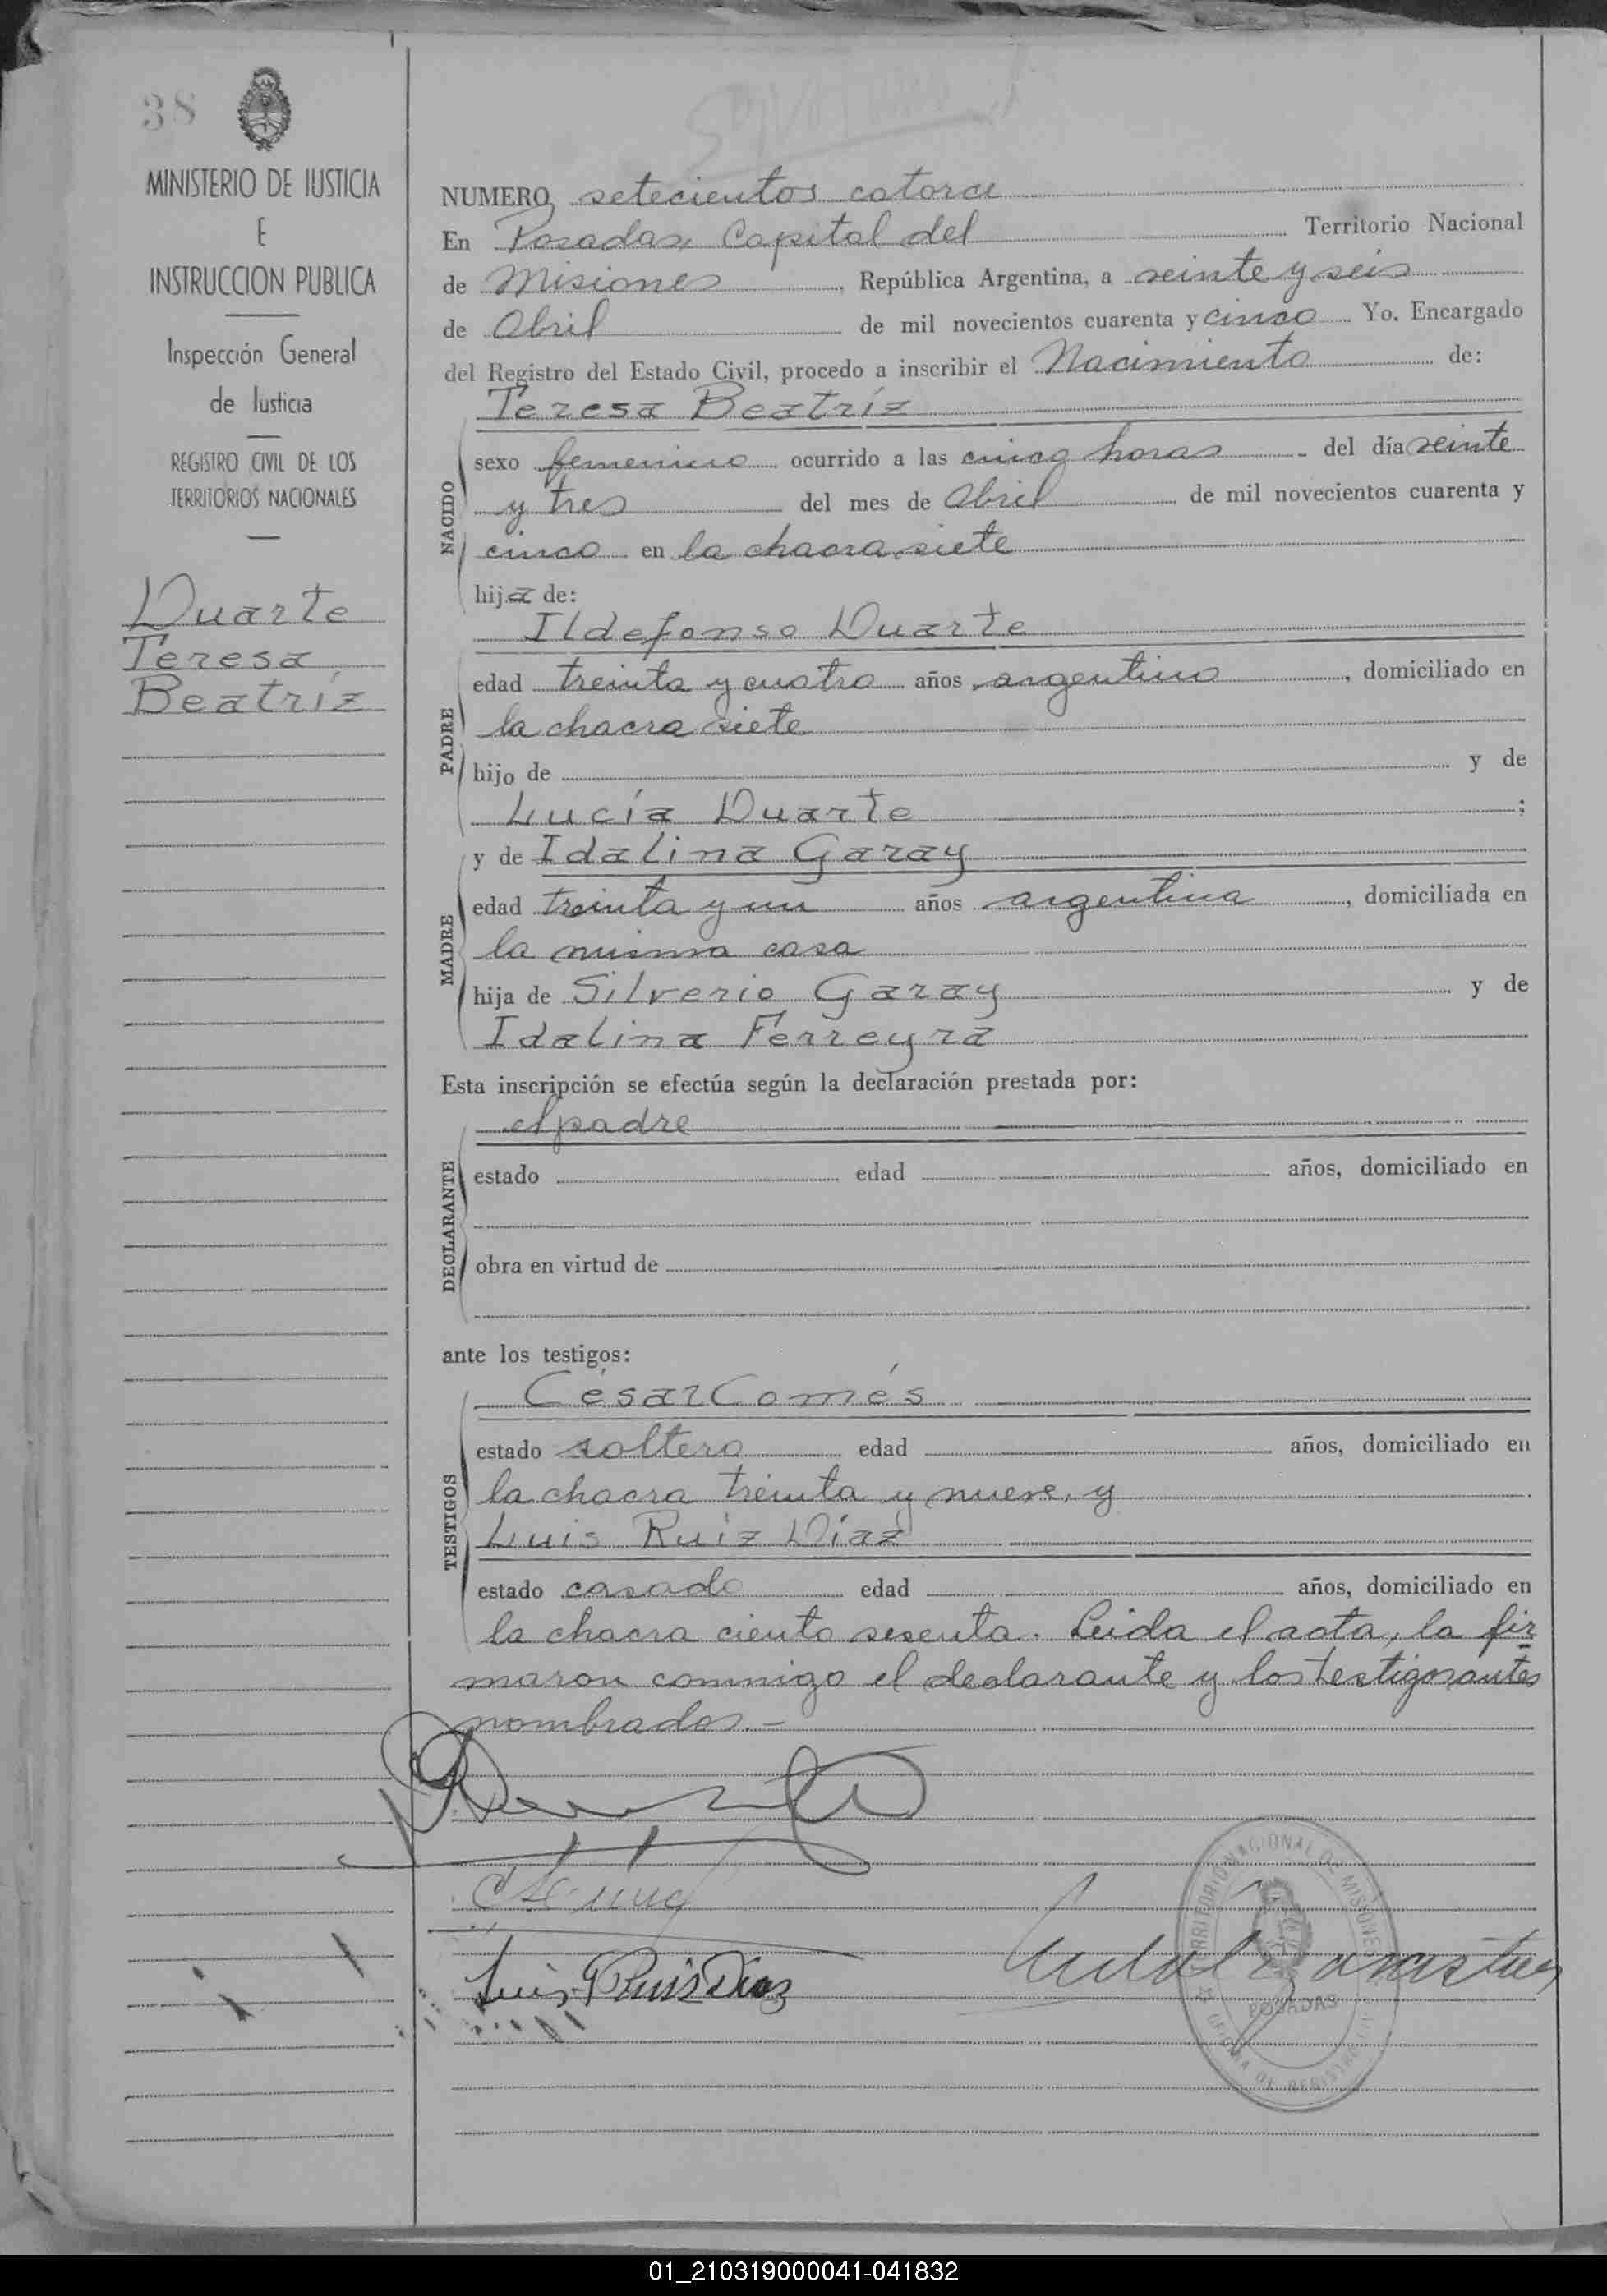 38
MINISTERIO DE JUSTICIA
E
INSTRUCCION PUBLICA
Inspección General
de Justicia
REGISTRO CIVIL DE LOS
TERRITORIOS NACIONALES
Duarte
Teresa
Beatríz
NUMERO setecientos catorce
En Posadas Capital del Territorio Nacional
de Misiones, República Argentina, a veinte y seis
de Abril de mil novecientos cuarenta y cinco Yo, Encargado
del Registro del Estado Civil, procedo a inscribir el Nacimiento de:
Teresa Beatríz
NACIDO
sexo femenino ocurrido a las cinco horas del día veinte
y tres del mes de Abril de mil novecientos cuarenta y
cinco en la chacra siete
hija de:
Ildefonso Duarte
PADRE
edad treinta y cuatro años argentino, domiciliado en
la chacra siete
hijo de y de
Lucía Duarte ;
MADRE
y de Idalina Garay
edad treinta y un años argentina, domiciliada en
la misma casa
hija de Silverio Garay y de
Idalina Ferreyra
Esta inscripción se efectúa según la declaración prestada por:
DECLARANTE
el padre
estado edad años, domiciliado en
obra en virtud de
ante los testigos:
TESTIGOS
César Comés
estado soltero edad años, domiciliado en
la chacra treinta y nueve, y
Luis Ruiz Díaz
estado casado edad años, domiciliado en
la chacra ciento sesenta. Leida el acta, la fir
maron conmigo el declarante y los testigos antes
nombrados.-
Luis Ruis Diaz
TERRITORIO NACIONAL DE MISIONES
POSADAS
OFICINA DE REGISTRO
01_210319000041-041832